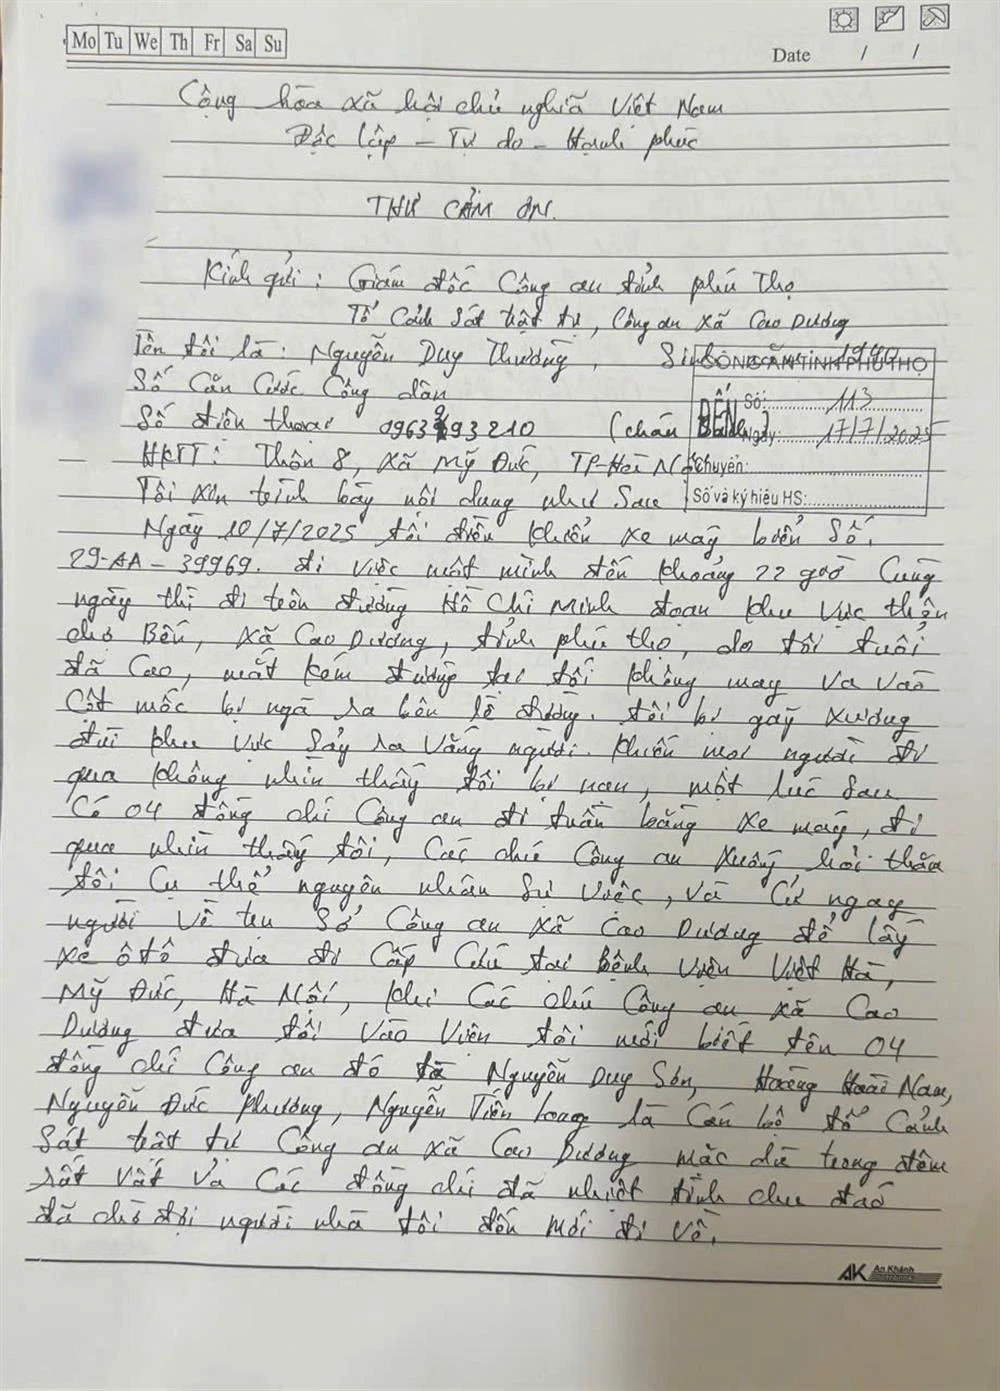 Mo Tu We Th Fr Sa Su
Date / /
Cộng hòa xã hội chủ nghĩa Việt Nam
Độc lập - Tự do - Hạnh phúc
THƯ CẢM ƠN.
Kính gửi: Giám đốc Công an tỉnh phú Thọ
Tổ Cảnh Sát trật tự, Công an xã Cao Dương
Tên tôi là: Nguyễn Duy Thường, Sinh
CÔNG AN TỈNH PHÚ THỌ
Số Căn Cước Công dân
ĐẾN Số: 113
Số điện thoại 0963 93210 (cháu
Ngày: 17/7/2025
HKTT: Thôn 8, xã Mỹ Đức, TP-Hà Nội
Chuyển:
Tôi xin trình bày nội dung như sau
Số và ký hiệu HS:
Ngày 10/7/2025 tôi điều khiển xe máy biển số.
29-AA-39969. đi việc một mình đến khoảng 22 giờ Cùng
ngày thì đi trên đường Hồ Chí Minh đoạn khu vực thôn
chợ Bến, xã Cao Dương, tỉnh phú thọ, do tôi tuổi
đã Cao, mắt kém đường lại tối không may va vào
Cột mốc bị ngã ra bên lề đường. tôi bị gãy xương
đùi khu vực sảy ra vắng người. khiến mọi người đi
qua không nhìn thấy tôi bị nạn, một lúc sau
Có 04 đồng chí Công an đi tuần bằng xe máy, đi
qua nhìn thấy tôi, Các chú Công an xuống hỏi thăm
tôi Cụ thể nguyên nhân sự việc, và Cử ngay
người về trụ sở Công an xã Cao Dương để lấy
xe ô tô đưa đi Cấp Cứu tại bệnh viện Việt Hà,
Mỹ Đức, Hà Nội, khi Các chú Công an xã Cao
Dương đưa tôi vào viện tôi mới biết tên 04
đồng chí Công an đó là Nguyễn Duy Sơn, Hoàng Hoài Nam,
Nguyễn Đức Phương, Nguyễn Tiến Long là Cán bộ tổ Cảnh
sát trật tự Công an xã Cao Dương mặc dù trong đêm
rất vất vả Các đồng chí đã nhiệt tình chu đáo
đã chờ đợi người nhà tôi đến mới đi về.
AK An Khánh